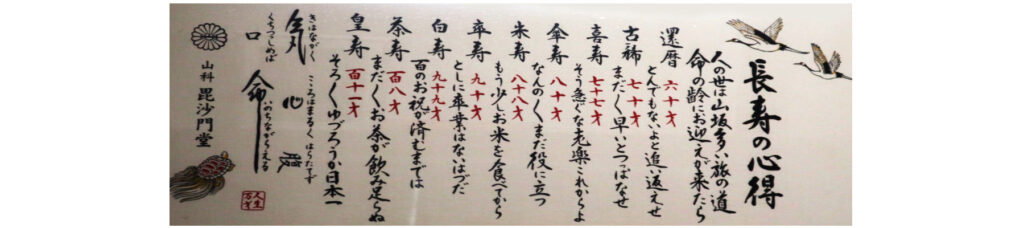 長寿の心得
人の世は山坂多い旅の道
命の齢にお迎えが来たら
還暦 六十才
とんでもないよと追い返えせ
古稀 七十才
まだ〱早いとつっぱなせ
喜寿 七十七才
そう急ぐな老楽これからよ
傘寿 八十才
なんの〱まだ役に立つ
米寿 八十八才
もう少しお米を食べてから
卒寿 九十才
としに卒業はないはづだ
白寿 九十九才
百のお祝が済むまでは
茶寿 百八才
まだ〱お茶が飲み足らぬ
皇寿 百十一才
そろ〱ゆづろうか日本一
きはながく こころはまるく はらたてず
氣 心 腹
くちつつしめば いのちながらえる
口 命
人生
万才
山科 毘沙門堂